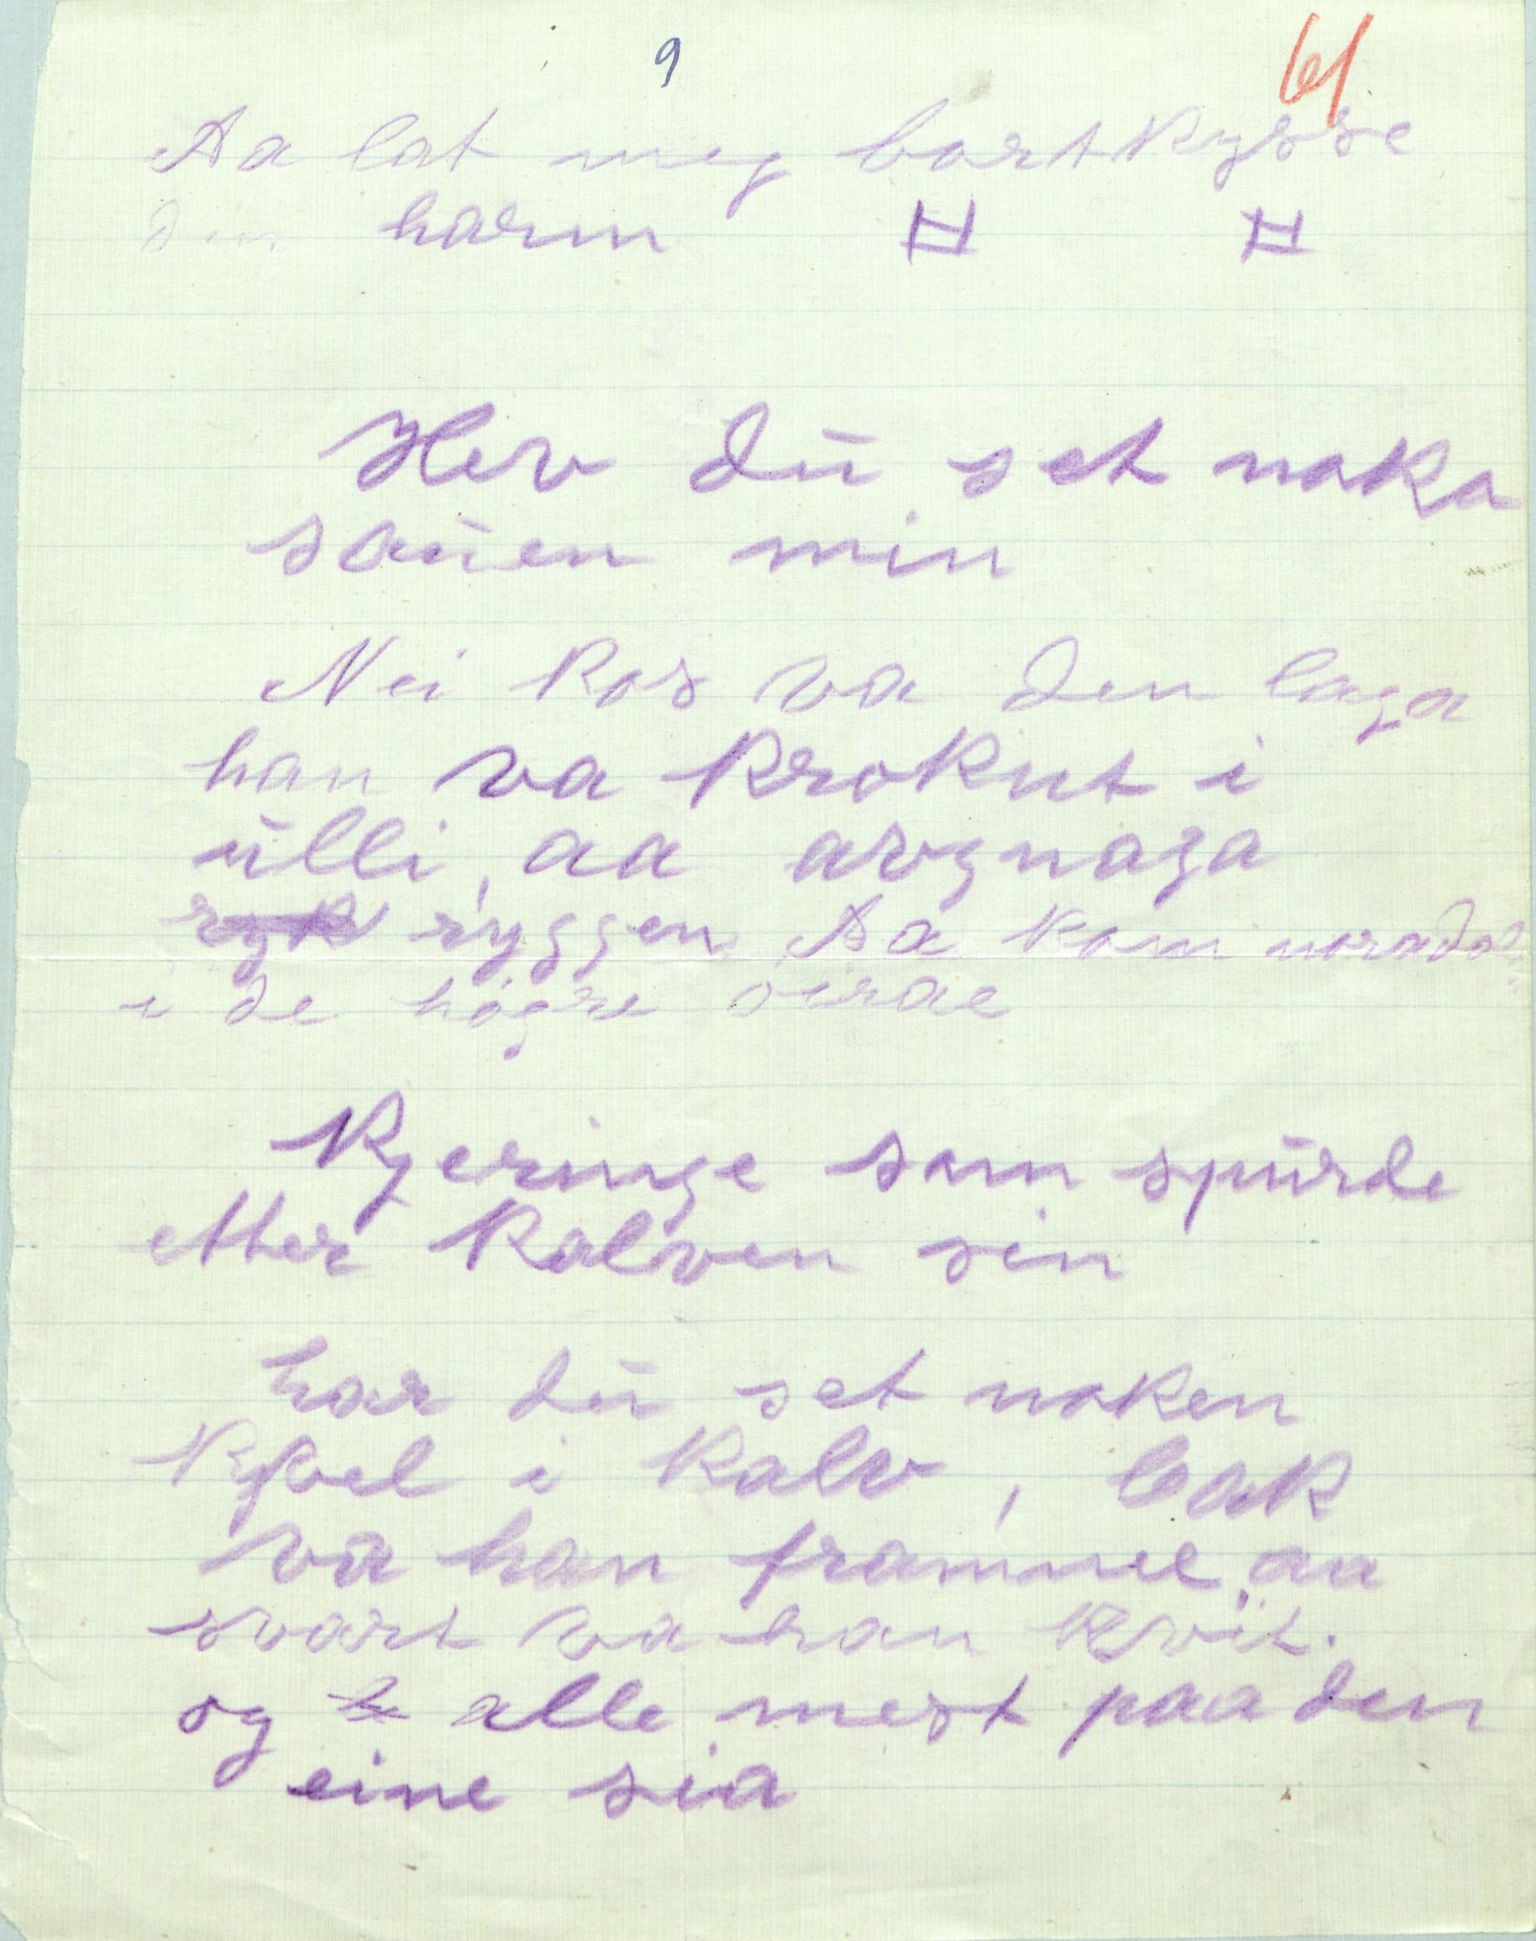 9
61
Aa lat meg bortkysse
din harm # #
Hev dū set noka
saūen min
Nei kos va den laga
han va krokut i
ūlli, aa argnaga
ryk ryggen Aa kom noradal
i de högre öirae
Kjeringe som spūrde
etter kalven sin
har dū set noken
i kalv, bak
va han framme aa
svart va han kvit.
og alle mest paa den
eine sia